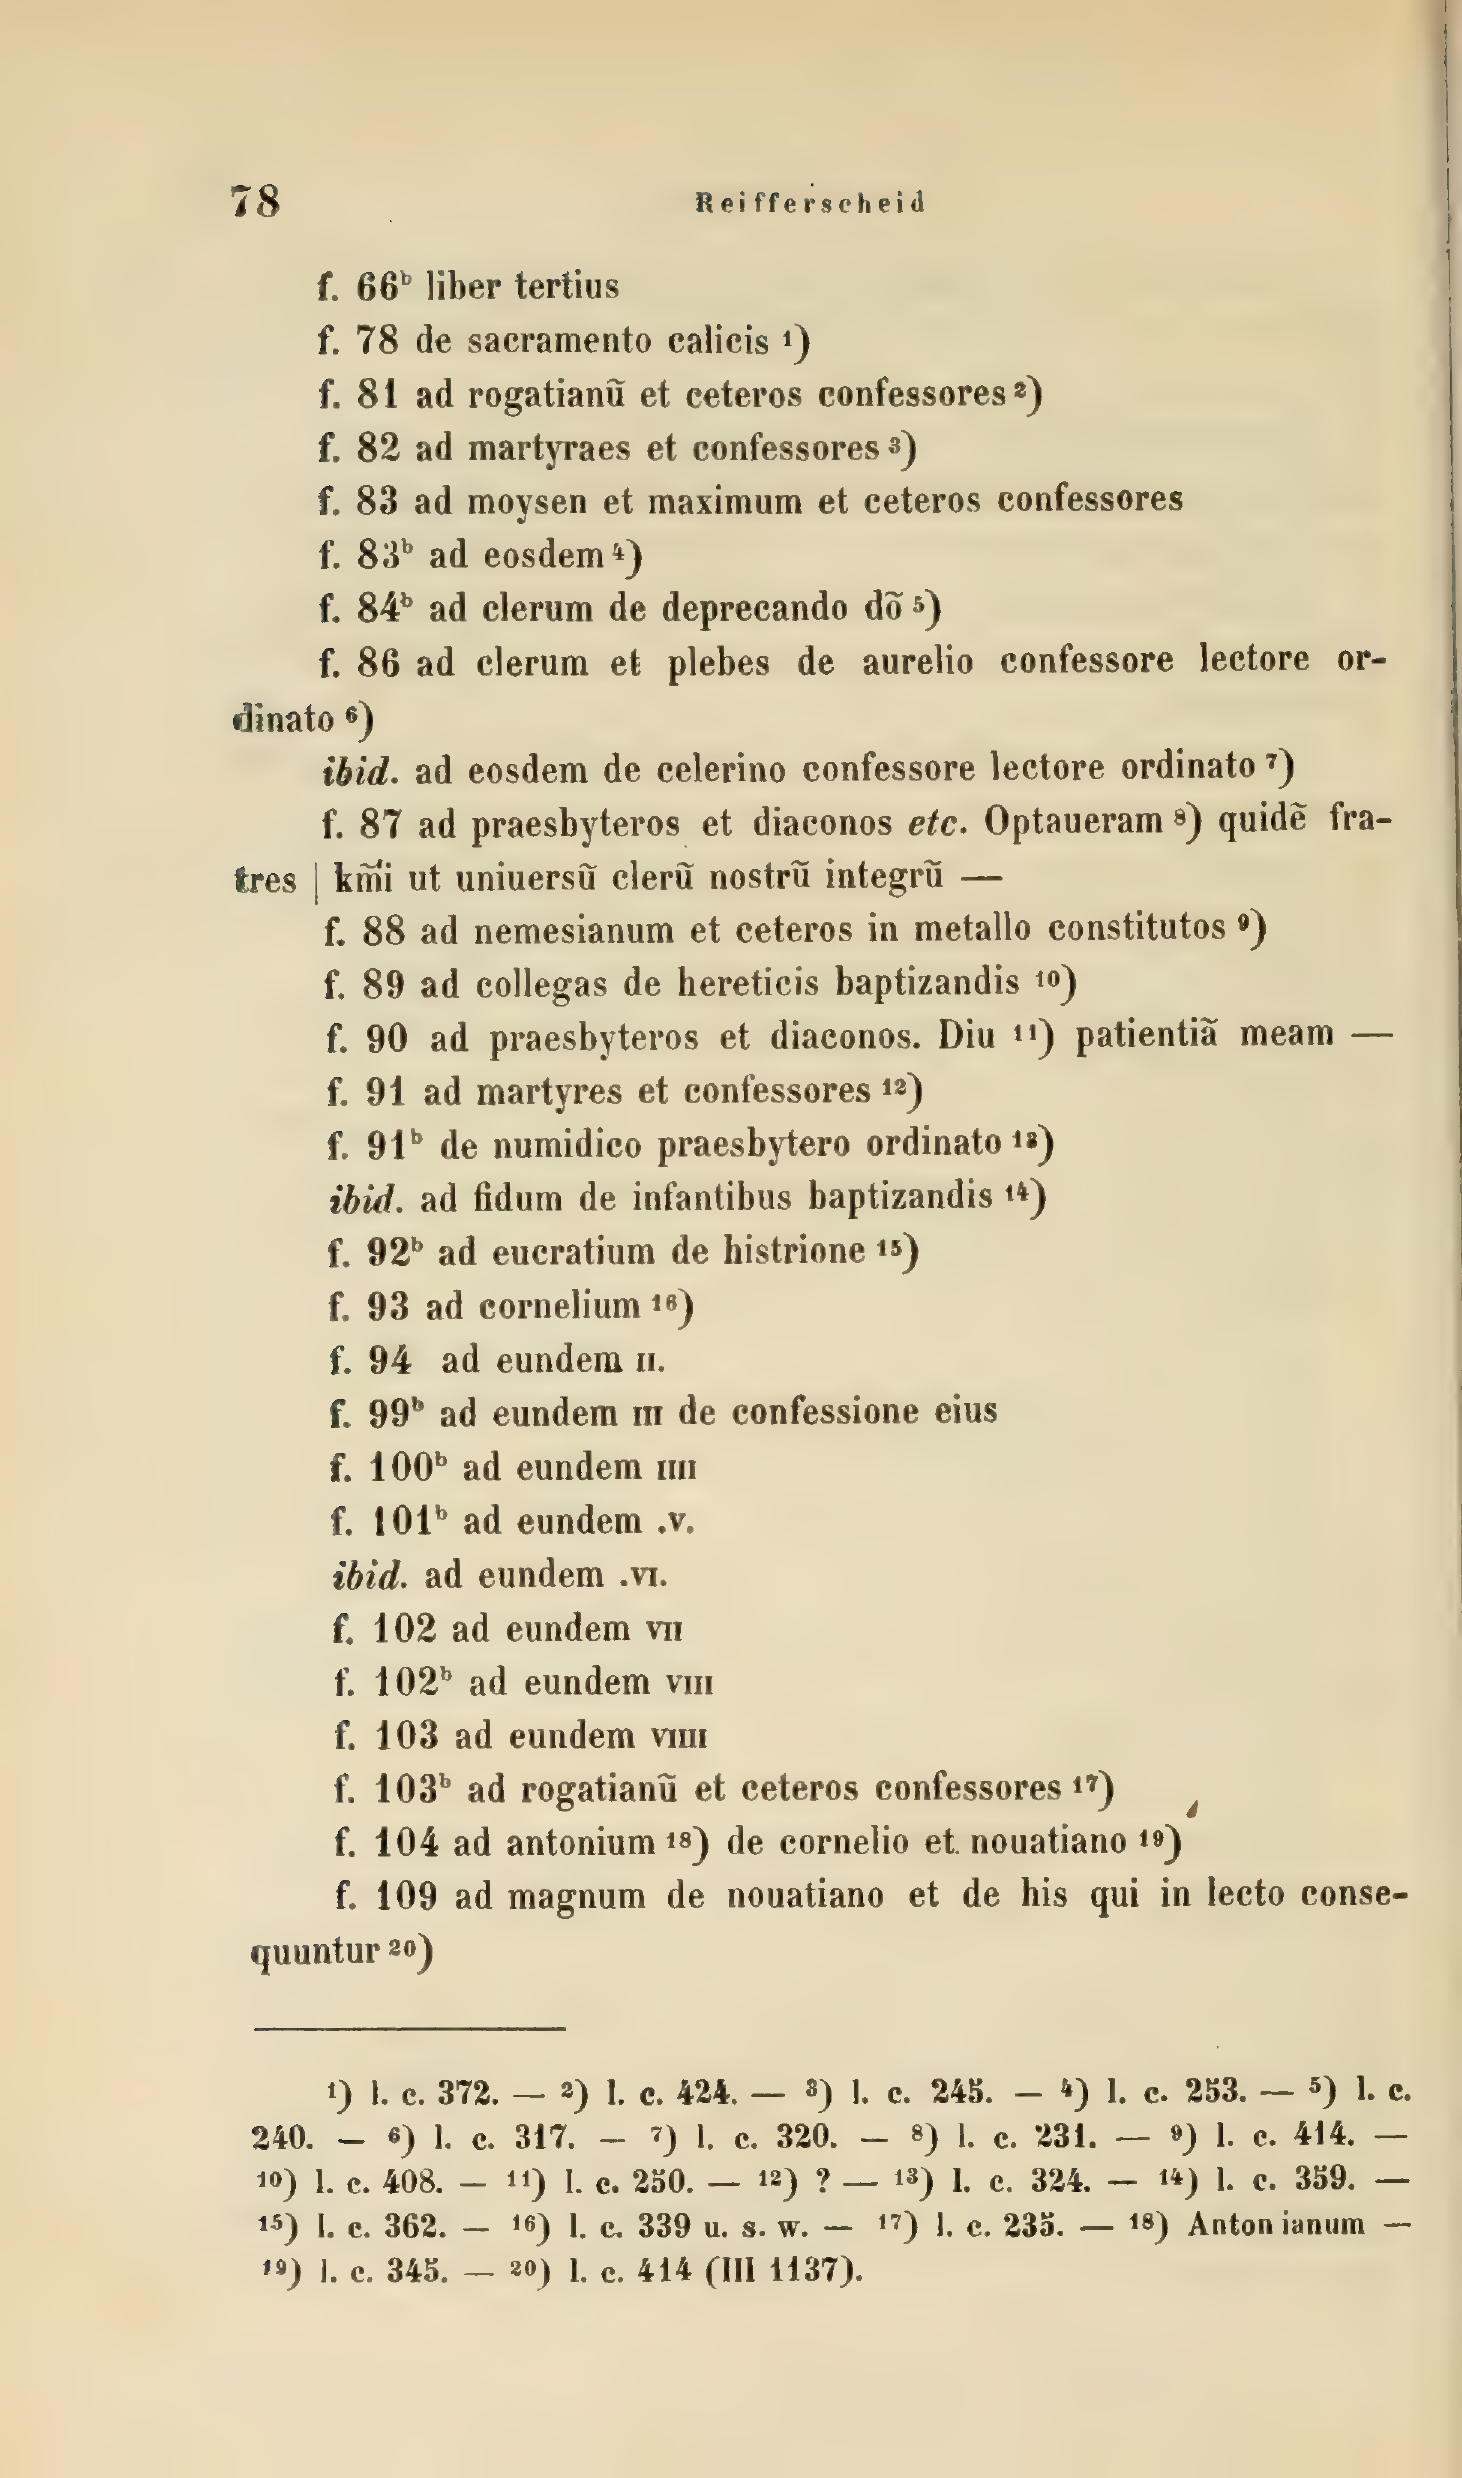 78 Reifferscheid
f. 66ᵇ liber tertius
f. 78 de sacramento calicis ¹)
f. 81 ad rogatianũ et ceteros confessores ²)
f. 82 ad martyraes et confessores ³)
f. 83 ad moysen et maximum et ceteros confessores
f. 83ᵇ ad eosdem ⁴)
f. 84ᵇ ad clerum de deprecando dõ ⁵)
f. 86 ad clerum et plebes de aurelio confessore lectore or-
dinato ⁶)
ibid. ad eosdem de celerino confessore lectore ordinato ⁷)
f. 87 ad praesbyteros et diaconos etc. Optaueram ⁸) quidẽ fra-
tres | km̃i ut uniuersũ clerũ nostrũ integrũ —
f. 88 ad nemesianum et ceteros in metallo constitutos ⁹)
f. 89 ad collegas de hereticis baptizandis ¹⁰)
f. 90 ad praesbyteros et diaconos. Diu ¹¹) patientiã meam —
f. 91 ad martyres et confessores ¹²)
f. 91ᵇ de numidico praesbytero ordinato ¹³)
ibid. ad fidum de infantibus baptizandis ¹⁴)
f. 92ᵇ ad eucratium de histrione ¹⁵)
f. 93 ad cornelium ¹⁶)
f. 94 ad eundem II.
f. 99ᵇ ad eundem III de confessione eius
f. 100ᵇ ad eundem IIII
f. 101ᵇ ad eundem .V.
ibid. ad eundem .VI.
f. 102 ad eundem VII
f. 102ᵇ ad eundem VIII
f. 103 ad eundem VIIII
f. 103ᵇ ad rogatianũ et ceteros confessores ¹⁷)
f. 104 ad antonium ¹⁸) de cornelio et nouatiano ¹⁹)
f. 109 ad magnum de nouatiano et de his qui in lecto conse-
quuntur ²⁰)
¹) l. c. 372. — ²) l. c. 424. — ³) l. c. 245. — ⁴) l. c. 253. — ⁵) l. c.
240. — ⁶) l. c. 317. — ⁷) l. c. 320. — ⁸) l. c. 231. — ⁹) l. c. 414. —
¹⁰) l. c. 408. — ¹¹) l. c. 250. — ¹²) ? — ¹³) l. c. 324. — ¹⁴) l. c. 359. —
¹⁵) l. c. 362. — ¹⁶) l. c. 339 u. s. w. — ¹⁷) l. c. 235. — ¹⁸) Antonianum —
¹⁹) l. c. 345. — ²⁰) l. c. 414 (III 1137).